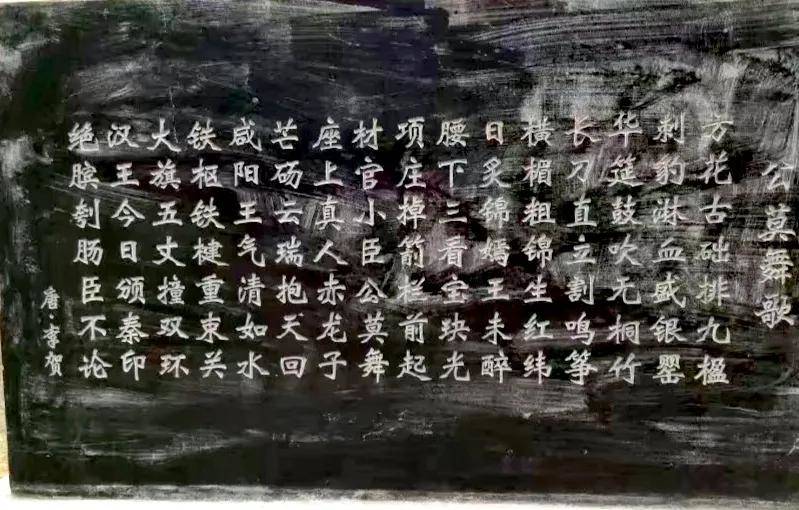 公莫舞歌
方花古础排九楹
刺豹淋血盛银罂
华筵鼓吹无桐竹
长刀直立割鸣筝
横楣粗锦生红纬
日炙锦嫣王未醉
腰下三看宝玦光
项庄掉箭栏前起
材官小臣公莫舞
座上真人赤龙子
芒砀云瑞抱天回
咸阳王气清如水
铁枢铁楗重束关
大旗五丈撞双环
汉王今日颁秦印
绝膑刳肠臣不论
唐·李贺